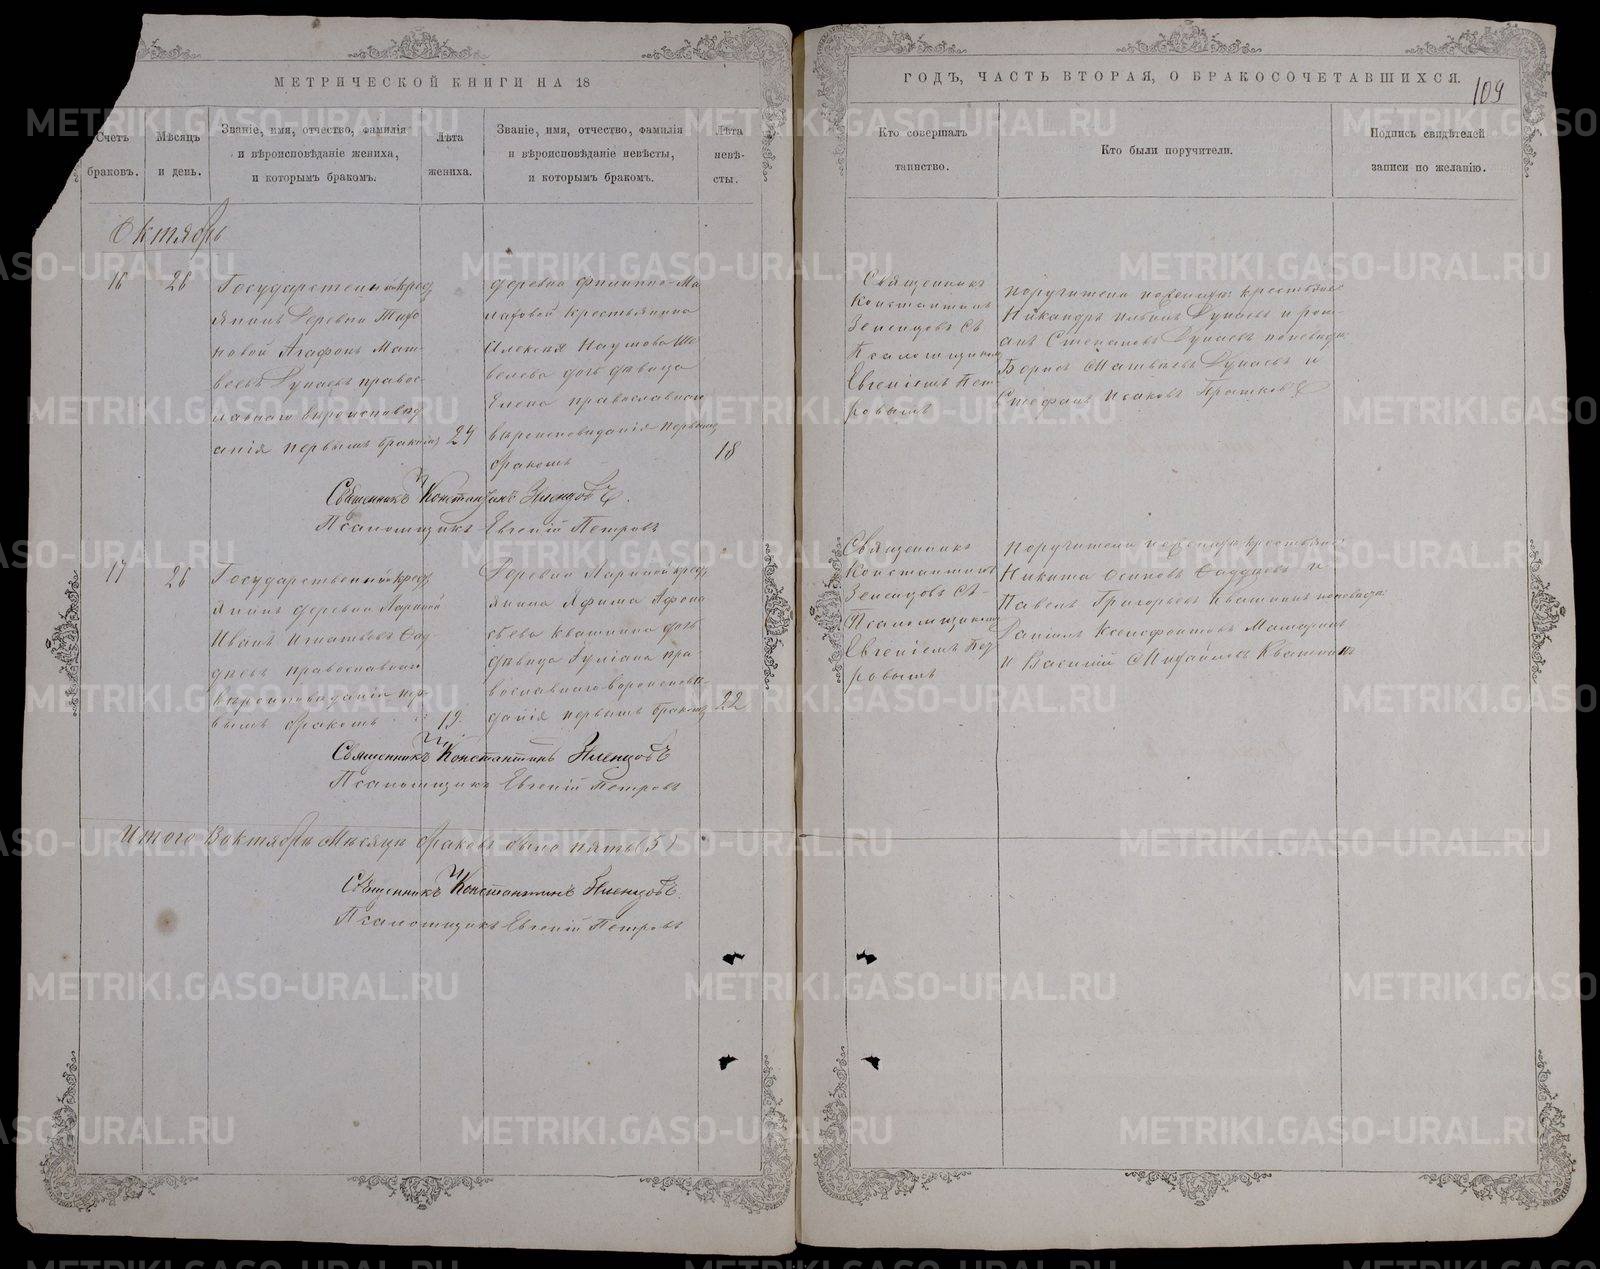 МЕТРИЧЕСКОЙ КНИГИ НА 18
Счетъ браковъ.
Мѣсяцъ и день.
Званіе, имя, отчество, фамилія и вѣроисповѣданіе жениха, и которымъ бракомъ.
Лѣта жениха.
Званіе, имя, отчество, фамилія и вѣроисповѣданіе невѣсты, и которымъ бракомъ.
Лѣта невѣ-сты.
Октябрь
16
26
Государственный крест
янинъ Деревни
новой Агафонъ Мат
веевъ Дунаевъ правос
лавнаго вѣроисповед
анія первымъ бракомъ
24
деревни Филиппо-Ма
крестьянина
Алексея Наумова Ше
велева дочь девица
Елена православнаго
вѣроисповиданія первымъ
бракомъ
18
Священникъ Константинъ Зеленцовъ.
Псаломщикъ Евгеній Петровъ
17
26
Государственный крест
янинъ деревни Лариной
Иванъ Игнатьевъ
православнаго
вѣроисповеданія пер
вымъ бракомъ
19
Деревни Лариной крест
янина Афона
сьева Квашнина дочь
девица Іуліана пра
вославнаго вероисповѣ
данія первымъ бракомъ
22
Священникъ Константинъ Зеленцовъ
Псаломщикъ Евгеній Петровъ
Итого Воктябрѣ Мѣсяцѣ браковъ было пять (5)
Священникъ Константинъ Зеленцовъ.
Псаломщикъ Евгеній Петровъ
ГОДЪ, ЧАСТЬ ВТОРАЯ, О БРАКОСОЧЕТАВШИХСЯ.
109
Кто совершалъ таинство.
Кто были поручители.
Подпись свидѣтелей записи по желанію.
Священникъ
Константинъ
Зеленцовъ Съ
Псаломщикомъ
Евгеніемъ Пет
ровымъ
поручители поженихѣ крестьяне
Никандръ Ильинъ Дунаевъ и ром
анъ Степановъ Дунаевъ поневѣсте
Борисъ Матвѣевъ Дунаевъ и
Стефанъ Исаковъ
Священникъ
Константинъ
Зеленцовъ Съ
Псаломщикомъ
Евгеніемъ Пет
ровымъ
Поручители поженихѣ крестьяне
Никита Осиповъ и
Павелъ Григорьевъ Квашнинъ поневѣсте
Даніилъ Ксенофонтовъ
и Василій Михайловъ Квашнинъ
METRIKI.GASO-URAL.RU